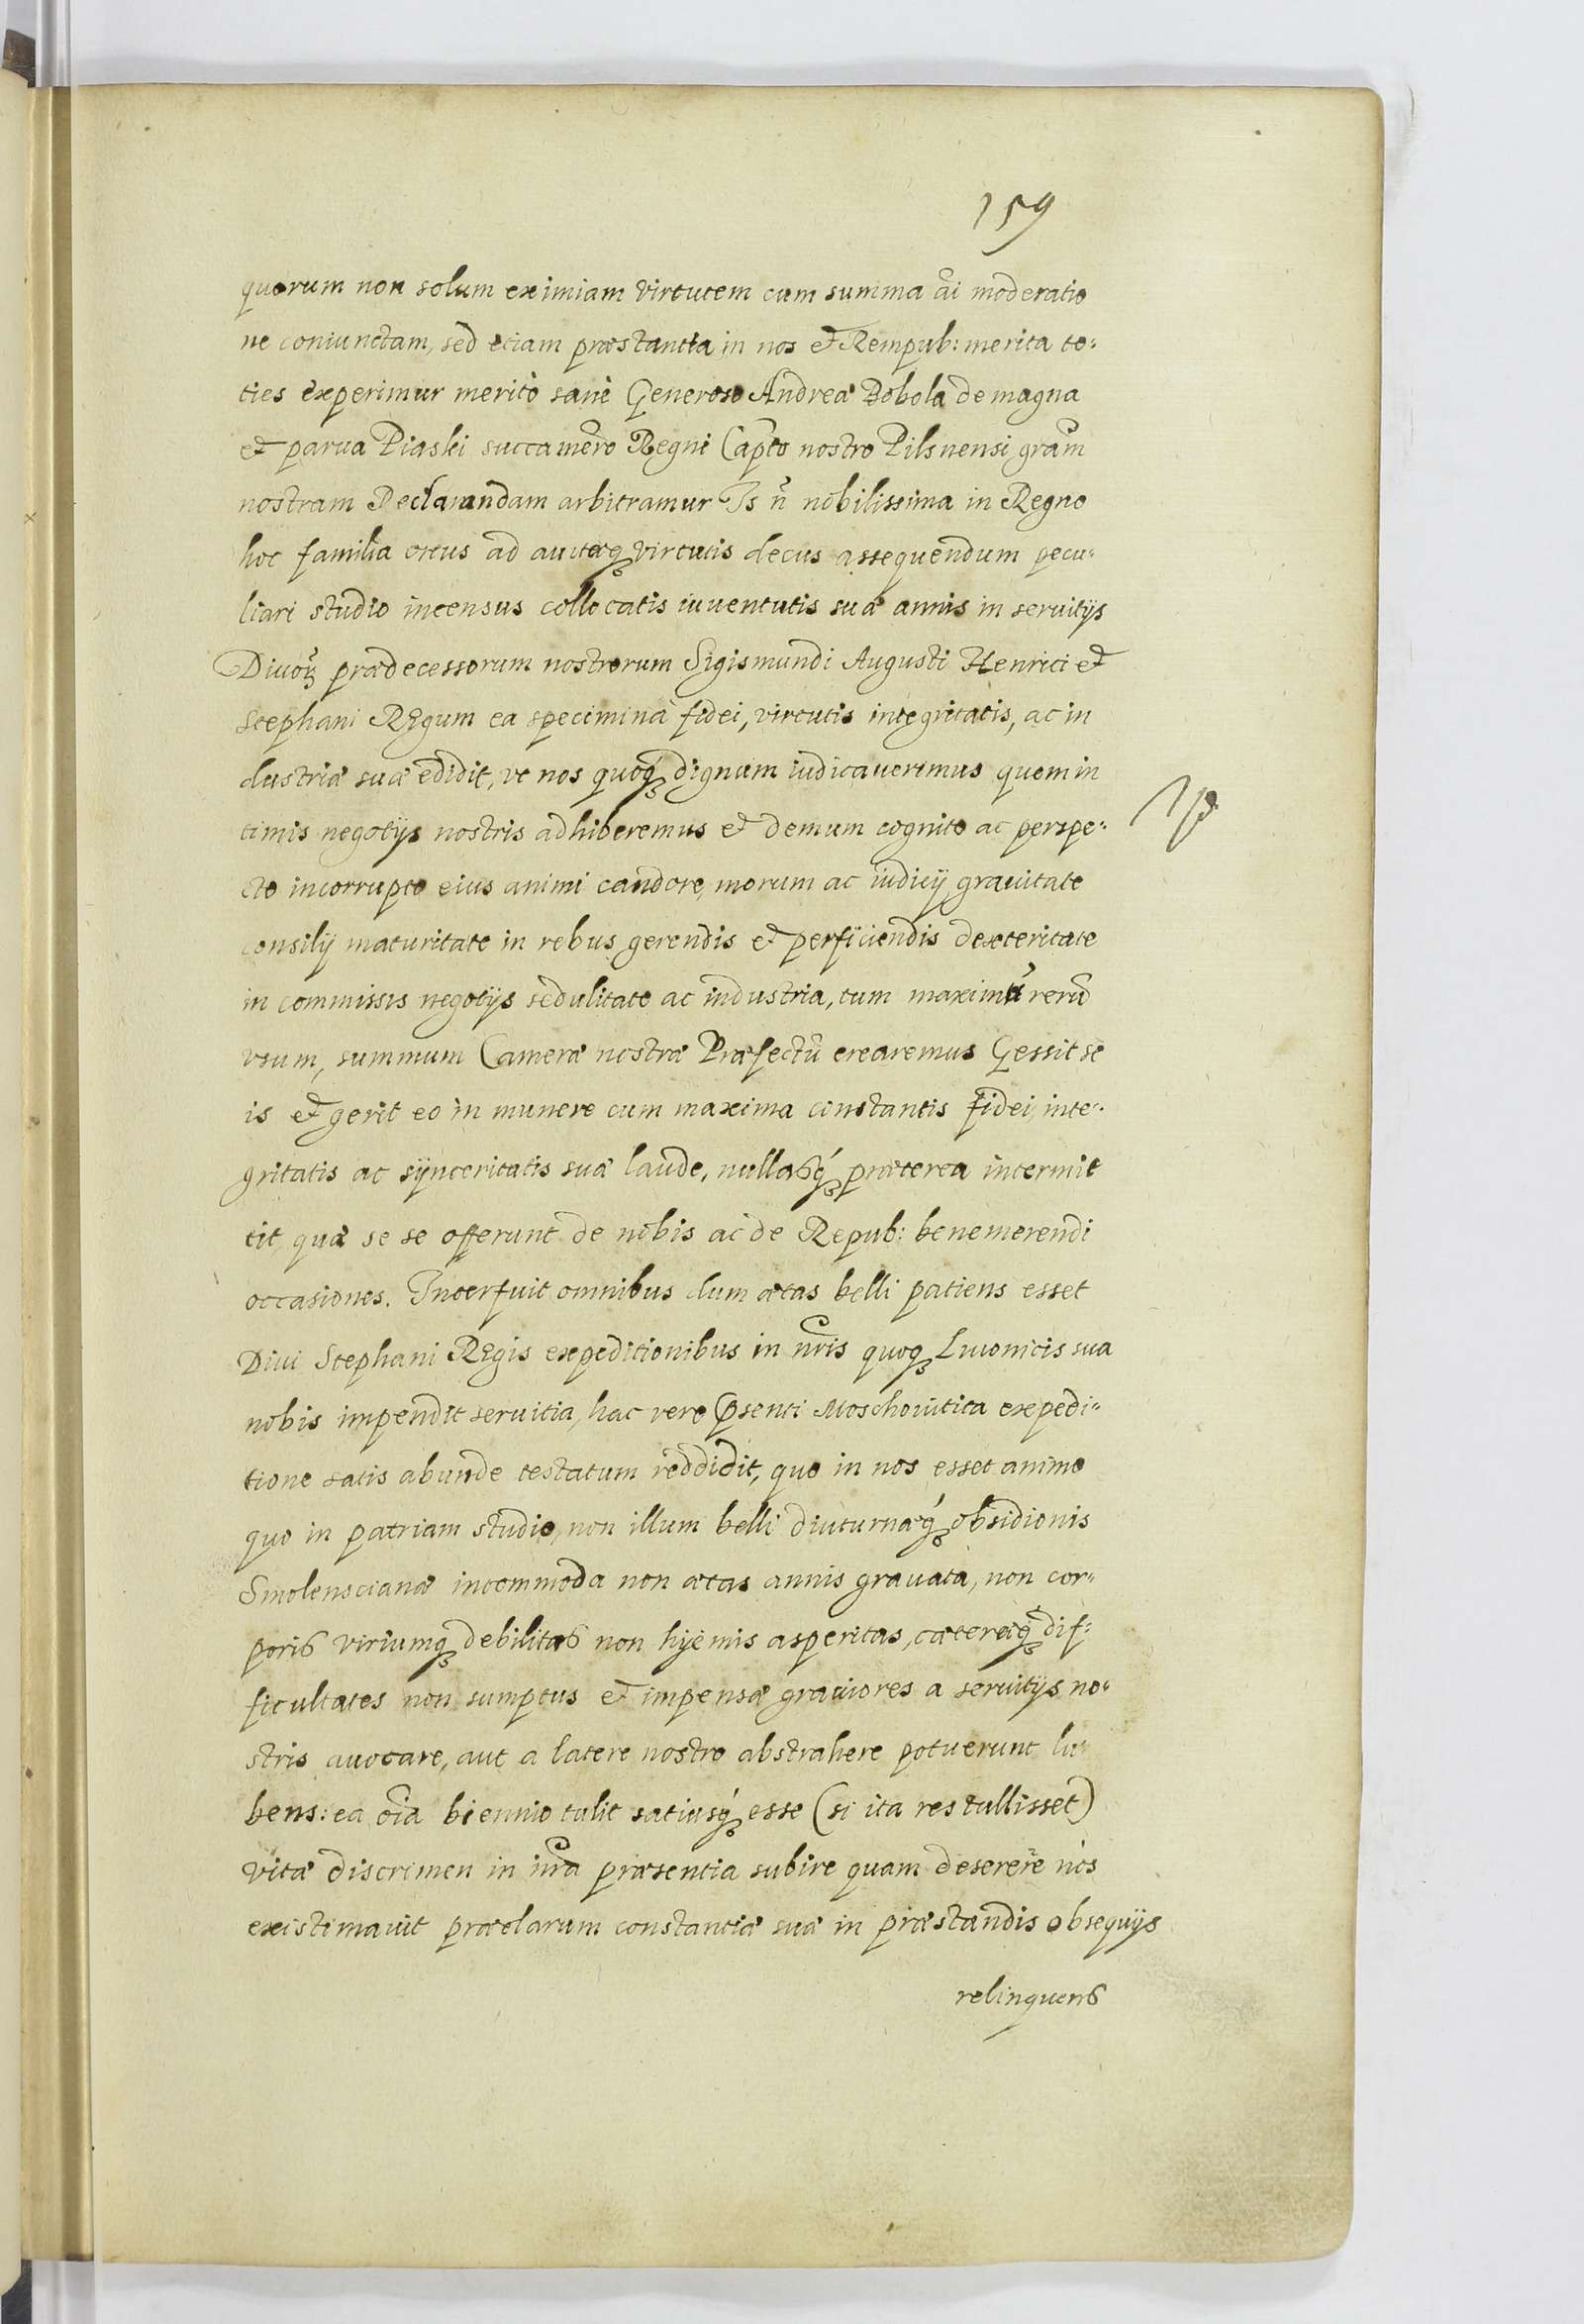 159
quorum non solum eximiam virtutem cum summa ãi moderatio
ne coniunctam, sed etiam præstantia in nos et Rempub: merita to-
ties experimur meritò sanè Generoso Andreæ Bobola de magna
et parua Piaski succamero Regni Capto nostro Pilsnensi gram̃
nostram Declarandam arbitramur Is ñ nobilissima in Regno
hoc familia ortus ad auitæq virtutis decus assequendum pecu-
liari studio incensus collocatis iuuentutis suæ annis in seruitijs
Diuoꝝ prædecessorum nostrorum Sigismundi Augusti Henrici et
Stephani Regum ea specimina fidei, virtutis integritatis, ac in
dustriæ suæ edidit, vt nos quoq dignum iudicauerimus quem in
timis negotijs nostris adhiberemus et demum cognito ac perspe-
cto incorrupto eius animi candore, morum ac iudicij grauitate
consilij maturitate in rebus gerendis et perficiendis dexteritate
in commissis negotijs sedulitate ac industria, tum maximũ rerũ
vsum, summum Cameræ nostræ Præfectũ crearemus Gessit se
is et gerit eo in munere cum maxima constantis fidei, inte-
gritatis ac sÿnceritatis suæ laude, nullasq́ præterea intermit
tit quæ se se offerunt de nobis ac de Repub: benemerendi
occasiones. Interfuit omnibus dum ætas belli patiens esset
Diui Stephani Regis expeditionibus in nr̃is quoq Liuonicis sua
nobis impendit seruitia, hac vero p̱senti Moschouitica expedi-
tione satis abunde testatum reddidit, quo in nos esset animo
quo in patriam studio, non illum belli diuturnæq́ obsidionis
Smolenscianæ incommoda non ætas annis grauata, non cor-
poris viriumq debilitas non hyemis asperitas, cæteræq́ dif-
ficultates non sumptus et impensæ grauiores a seruitijs no-
stris auocare, aut a latere nostro abstrahere potuerunt lu-
bens: ea oĩa biennio tulit satiusq́ esse (si ita res tullisset)
vitæ discrimen in nr̃a præsentia subire quam deserere nos
existimauit præclarum constantiæ suæ in præstandis obsequijs
relinquens